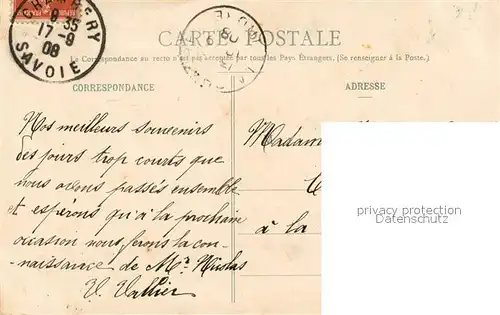 CHAMBERY
8 35
17-9
08
SAVOIE
CARTE POSTALE
La Correspondance au recto n'est pas acceptée par tous les Pays Étrangers. (Se renseigner à la Poste.)
CORRESPONDANCE
ADRESSE
Nos meilleurs souvenirs
des jours trop courts que
nous avons passés ensemble
et espérons qu'à la prochaine
occasion nous ferons la con-
naissance de Mr. Nicolas
V. Vallier
Madam
à la
privacy protection
Datenschutz